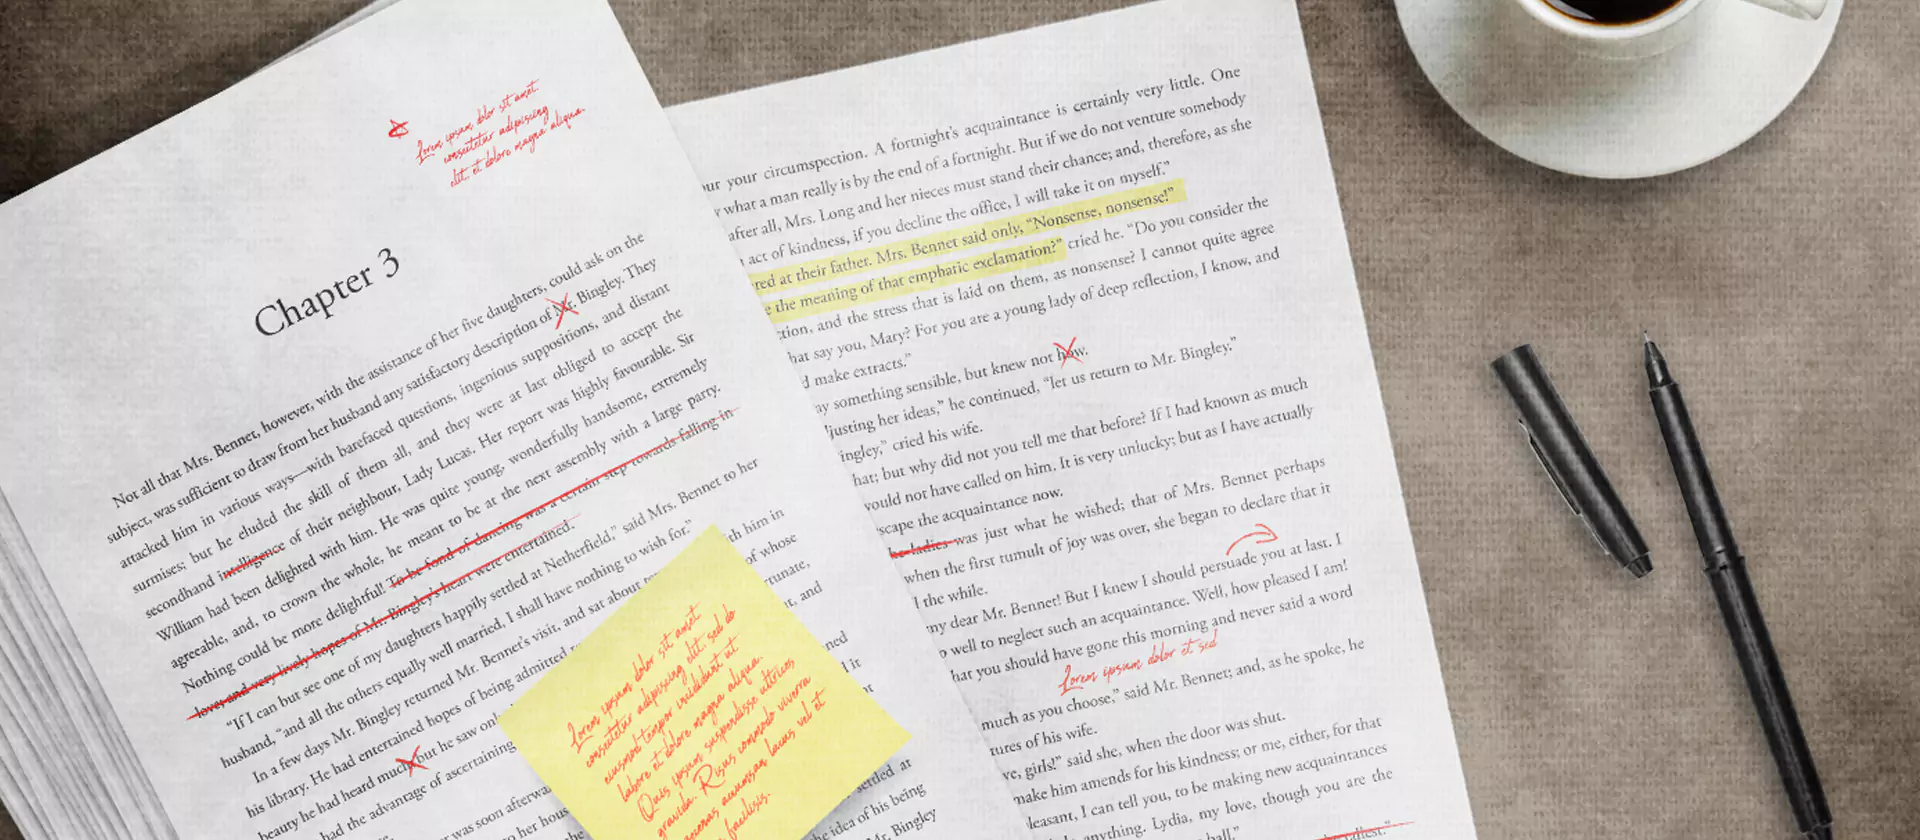 Lorem ipsum dolor sit amet
consectetur adipiscing
elit, et dolore magna aliqua.
Chapter 3
Not all that Mrs. Bennet, however, with the assistance of her five daughters, could ask on the
subject, was sufficient to draw from her husband any satisfactory description of Mr. Bingley. They
attacked him in various ways—with barefaced questions, ingenious suppositions, and distant
surmises; but he eluded the skill of them all, and they were at last obliged to accept the
secondhand intelligence of their neighbour, Lady Lucas. Her report was highly favourable. Sir
William had been delighted with him. He was quite young, wonderfully handsome, extremely
agreeable, and, to crown the whole, he meant to be at the next assembly with a large party.
Nothing could be more delightful! To be fond of dancing was a certain step towards falling in
love; and very lively hopes of Mr. Bingley's heart were entertained.
"If I can but see one of my daughters happily settled at Netherfield," said Mrs. Bennet to her
husband, "and all the others equally well married, I shall have nothing to wish for."
In a few days Mr. Bingley returned Mr. Bennet's visit, and sat about th him in
his library. He had entertained hopes of being admitted of whose
beauty he had heard much; but he saw only rtunate,
had the advantage of ascertaining , and
was soon afterwa ned
to her hou d it
Lorem ipsum dolor sit amet
consectetur adipiscing elit, sed do
eiusmod tempor incididunt ut
labore et dolore magna aliqua.
Quis ipsum suspendisse ultrices
gravida. Risus commodo viverra
accumsan lacus vel
facilisis.
ettled at
the idea of his being
Mr. Bingley
ur your circumspection. A fortnight's acquaintance is certainly very little. One
what a man really is by the end of a fortnight. But if we do not venture somebody
after all, Mrs. Long and her nieces must stand their chance; and, therefore, as she
act of kindness, if you decline the office, I will take it on myself."
red at their father. Mrs. Bennet said only, "Nonsense, nonsense!"
e the meaning of that emphatic exclamation?" cried he. "Do you consider the
tion, and the stress that is laid on them, as nonsense? I cannot quite agree
hat say you, Mary? For you are a young lady of deep reflection, I know, and
d make extracts."
ay something sensible, but knew not how.
justing her ideas," he continued, "let us return to Mr. Bingley."
ingley," cried his wife.
hat; but why did not you tell me that before? If I had known as much
would not have called on him. It is very unlucky; but as I have actually
scape the acquaintance now.
he ladies was just what he wished; that of Mrs. Bennet perhaps
when the first tumult of joy was over, she began to declare that it
l the while.
my dear Mr. Bennet! But I knew I should persuade you at last. I
o well to neglect such an acquaintance. Well, how pleased I am!
hat you should have gone this morning and never said a word
Lorem ipsum dolor et sed
much as you choose," said Mr. Bennet; and, as he spoke, he
tures of his wife.
ve, girls!" said she, when the door was shut.
make him amends for his kindness; or me, either, for that
leasant, I can tell you, to be making new acquaintances
anything. Lydia, my love, though you are the
ball."
tallest."